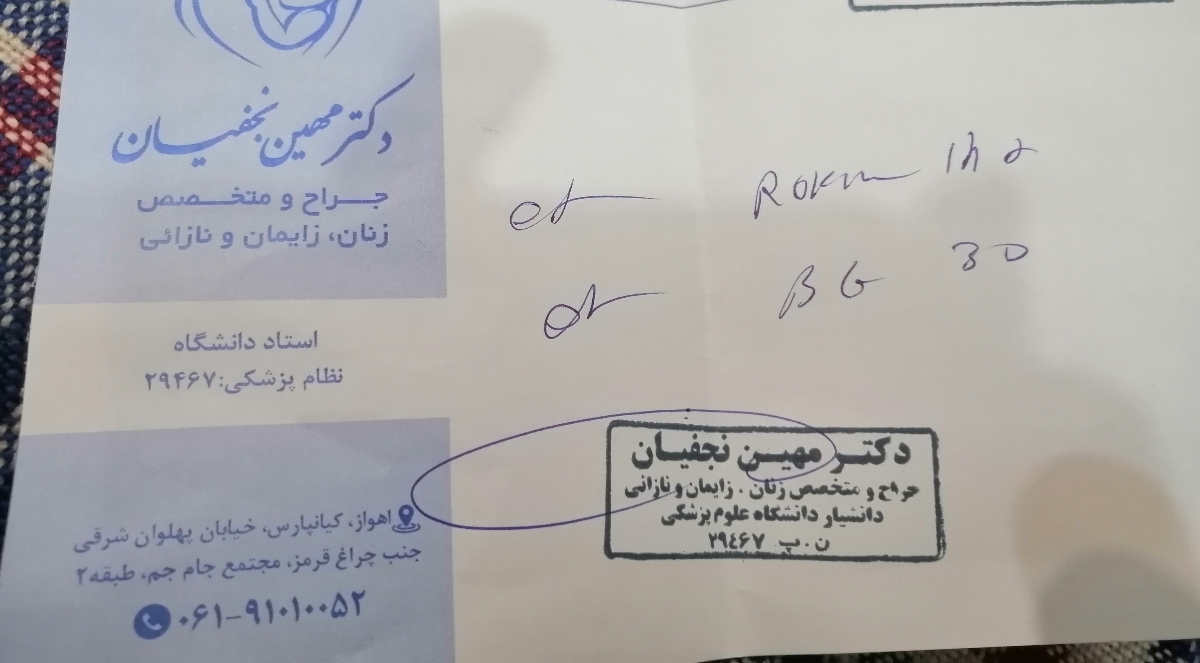 دکتر مهین نجفیان
جراح و متخصص
زنان، زایمان و نازائی
استاد دانشگاه
نظام پزشکی: ۲۹۴۶۷
اهواز، کیانپارس، خیابان پهلوان شرقی
جنب چراغ قرمز، مجتمع جام جم، طبقه۲
۰۶۱-۹۱۰۱۰۰۵۲
BG 30
دکتر مهین نجفیان
جراح و متخصص زنان . زایمان و نازائی
دانشیار دانشگاه علوم پزشکی
ن . پ ۲۹٤۶۷